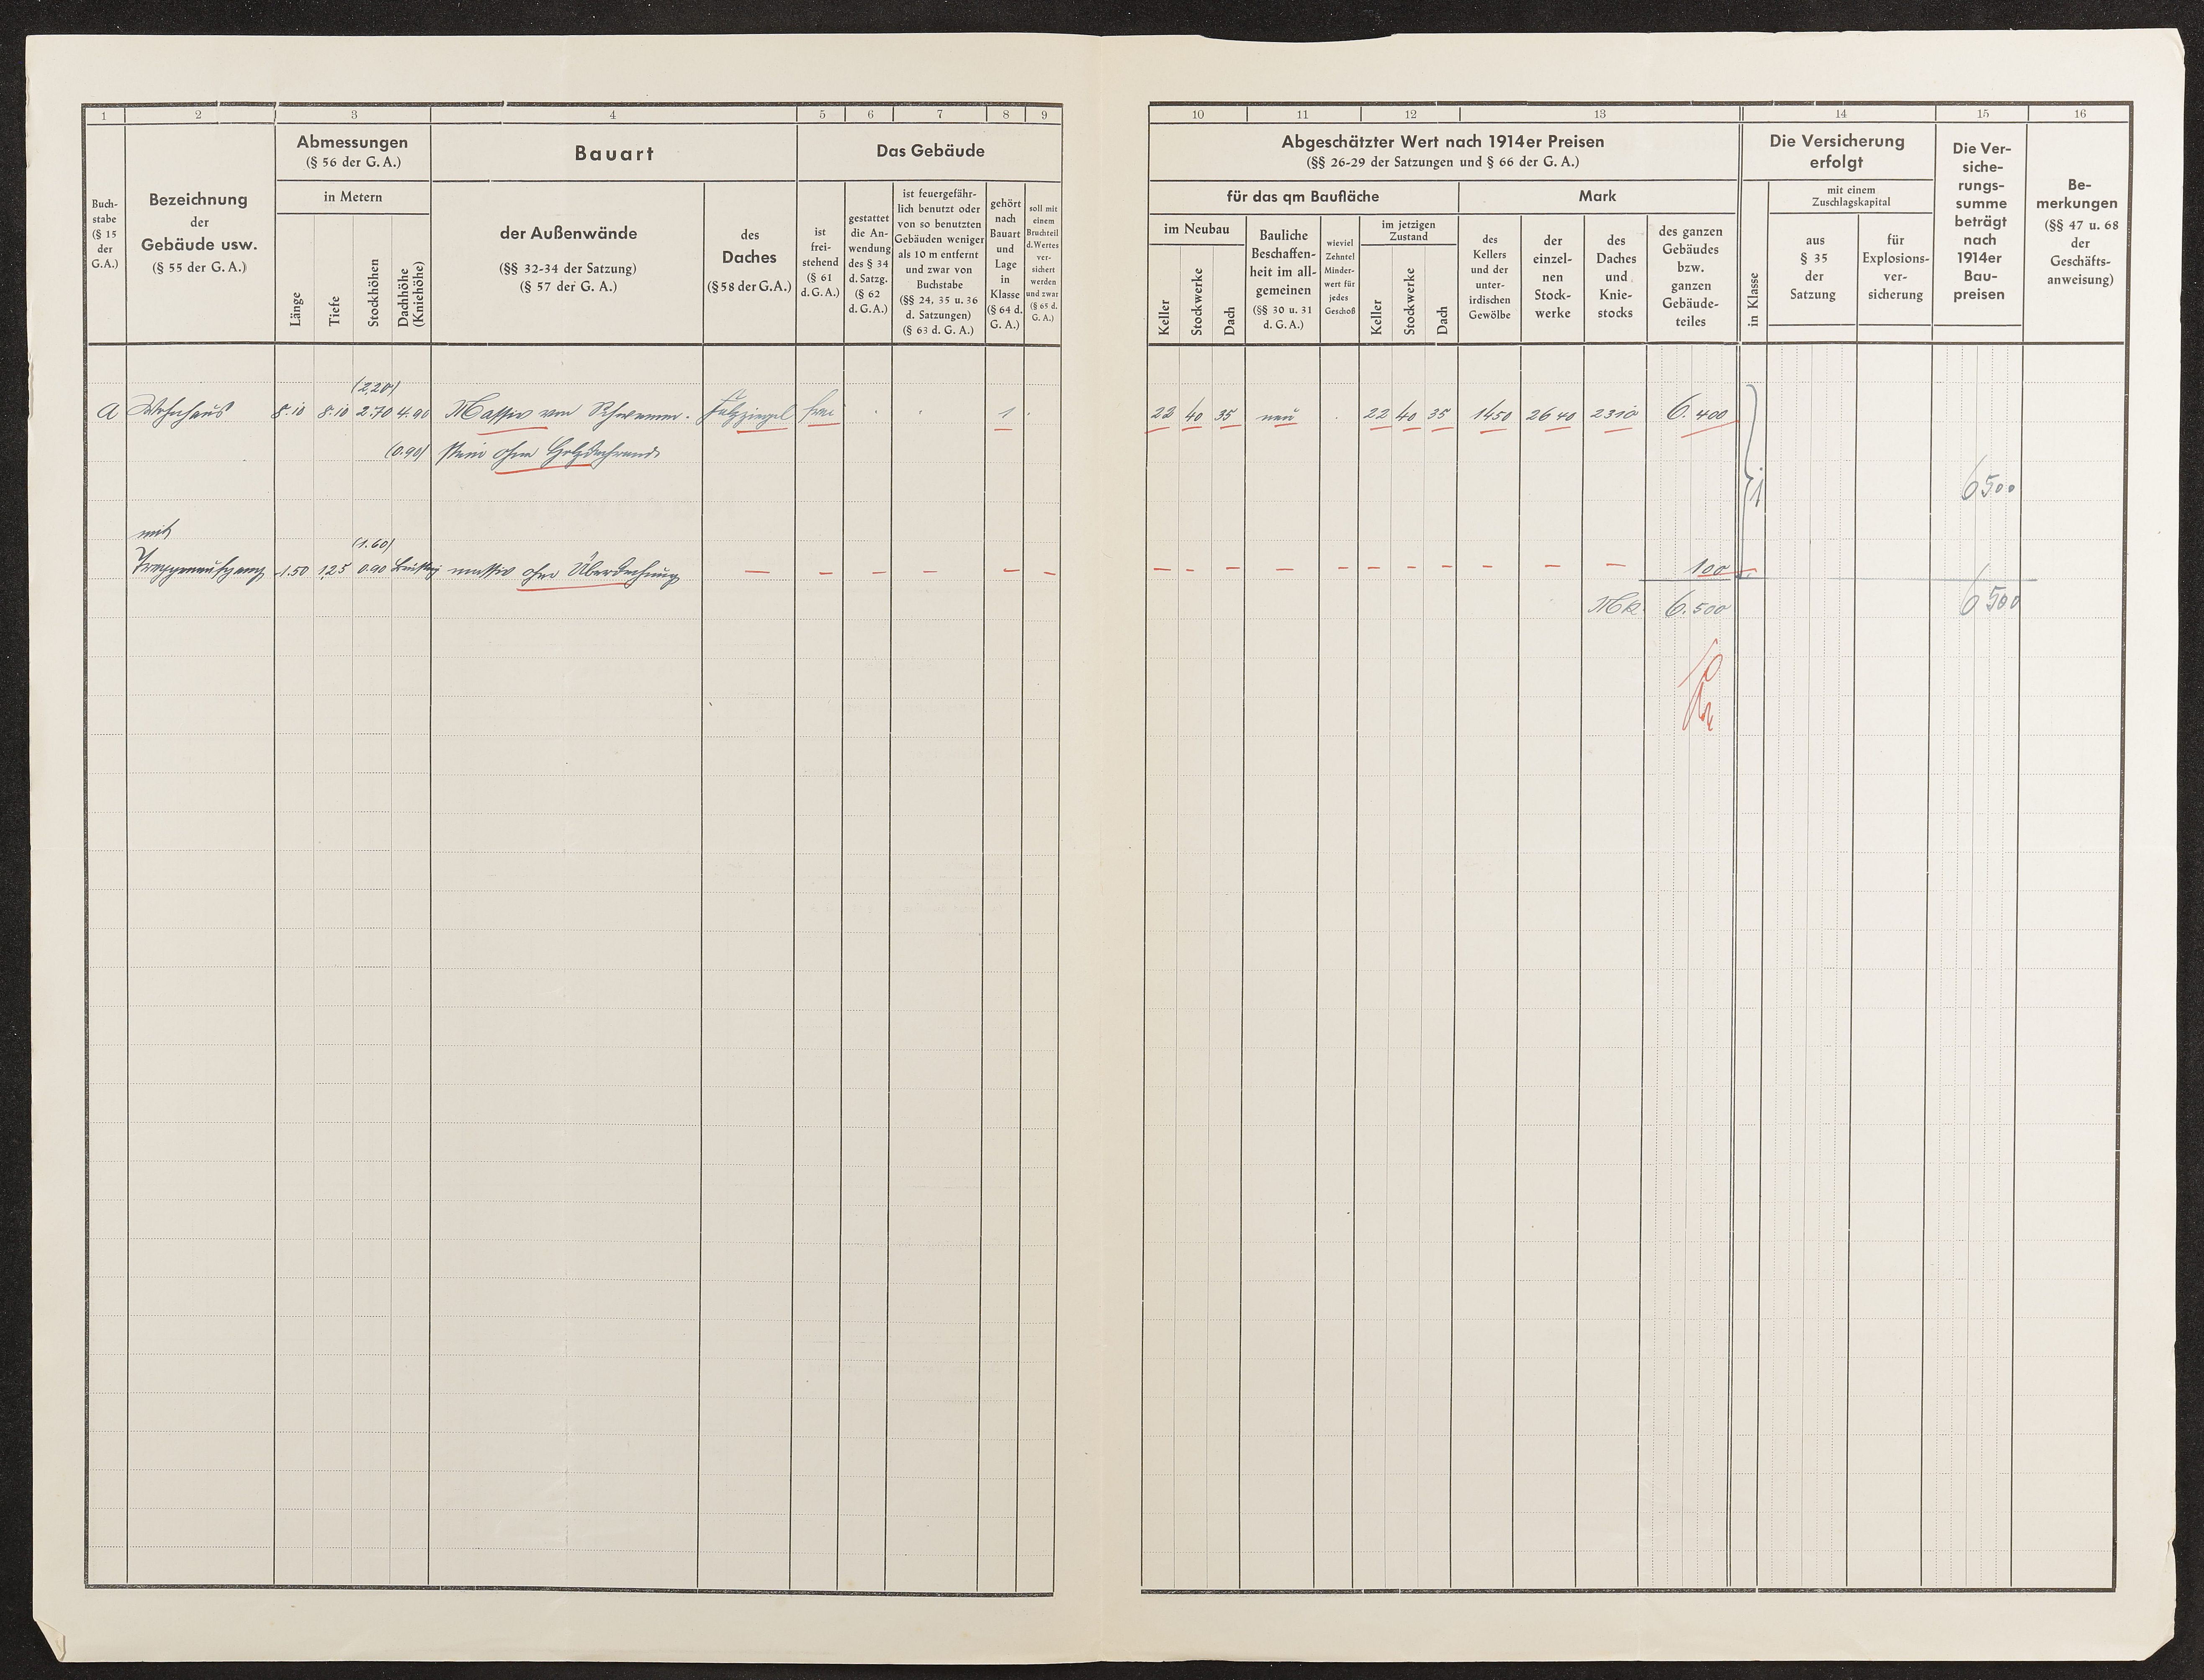 1 2 3 4 5 6 7 8 9
Abmessungen
(§ 56 der G. A.)
in Metern
Bauart
Das Gebäude
Buch-
stabe
(§ 15
der
G.A.)
Bezeichnung
der
Gebäude usw.
(§ 55 der G. A.)
Länge
Tiefe
Stockhöhen
Dachhöhe
(Kniehöhe)
der Außenwände
(§§ 32-34 der Satzung)
(§ 57 der G. A.)
des
Daches
(§ 58 der G. A.)
ist
frei-
stehend
(§ 61
d. G. A.)
gestattet
die An-
wendung
des § 34
d. Satzg.
(§ 62
d. G. A.)
ist feuergefähr-
lich benutzt oder
von so benutzten
Gebäuden weniger
als 10 m entfernt
und zwar von
Buchstabe
(§§ 24, 35 u. 36
d. Satzungen)
(§ 63 d. G. A.)
gehört
nach
Bauart
und
Lage
in
Klasse
(§ 64 d.
G. A.)
soll mit
einem
Bruchteil
d. Wertes
ver-
sichert
werden
und zwar
(§ 65 d.
G. A.)
(2,20)
A Wohnhaus 8.10 8.10 2.70 4.90 Massiv von Schwemm- Falzziegel frei 1
(0.90) stein ohne
mit
(1.60)
Treppenaufgang 1.50 1,25 0.90 massiv ohne Überdachung — — — — — —
10 11 12 13 14 15 16
Abgeschätzter Wert nach 1914er Preisen
(§§ 26-29 der Satzungen und § 66 der G. A.)
für das qm Baufläche
Mark
im Neubau
Keller
Stockwerke
Dach
Bauliche
Beschaffen-
heit im all-
gemeinen
(§§ 30 u. 31
d. G. A.)
wieviel
Zehntel
Minder-
wert für
jedes
Geschoß
im jetzigen
Zustand
Keller
Stockwerke
Dach
des
Kellers
und der
unter-
irdischen
Gewölbe
der
einzel-
nen
Stock-
werke
des
Daches
und
Knie-
stocks
des ganzen
Gebäudes
bzw.
ganzen
Gebäude-
teiles
Die Versicherung
erfolgt
in Klasse
mit einem
Zuschlagskapital
aus
§ 35
der
Satzung
für
Explosions-
ver-
sicherung
Die Ver-
siche-
rungs-
summe
beträgt
nach
1914er
Bau-
preisen
Be-
merkungen
(§§ 47 u. 68
der
Geschäfts-
anweisung)
22 40 35 neu 22 40 35 1450 2640 2310 6.400
1 6500
— — — — — — — — — — — 100
Mk. 6.500 6500